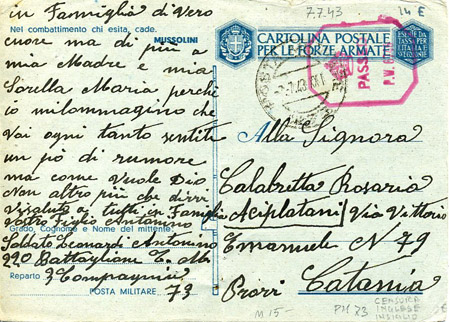 7.7.43
14 €
in Famiglia d'Vero
Nel combattimento chi esita, cade.
MUSSOLINI
cuore ma di più a
mia Madre e mia
Sorella Maria perché
io milommagino che
Voi ogni tanto sentite
un pò di rumore
ma come Vuole Dio
Non altro più che dirvi
Vi saluto a tutti in Famiglia
Vostro Figlio Antonino
Grado, Cognome e Nome del mittente:
Soldato Leonardi Antonino
220 Battaglione
Reparto 3 Compagnia
POSTA MILITARE 73
CARTOLINA POSTALE
PER LE FORZE ARMATE
ESENTE DA
TASSA PER
L'ITALIA E
COLONIE
PASSED
Alla Signora
Calabretta Rosaria
Aciplatani Via Vittorio
Emanuele N 79
Catania
M 15 -
PM 73
CENSURA
INGLESE